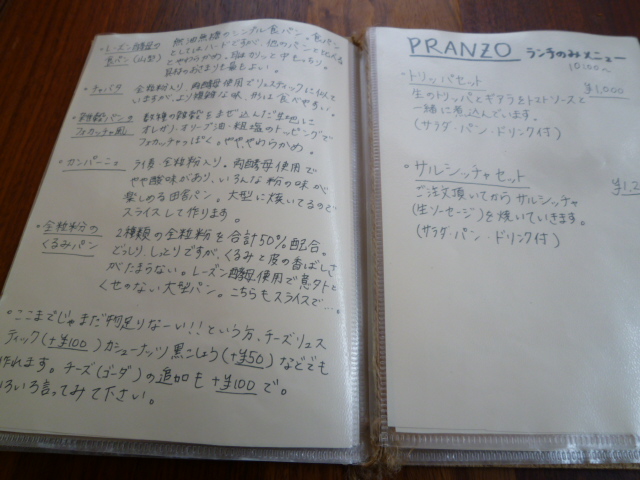 ・レーズン酵母の 飲油無糖のシンプル食パン。食パン
食パン(山型) としてはハードですが、他のパンと比べる
とやわらかめ。皮はカリッと中もっちり。
具材のおさまりも最もよい。
・チャバタ 全粒粉入り、両酵母使用でリュスティックに似て
いますが、より複雑な味、形は食べやすい。
・雑穀パンの 数種の雑穀をまぜ込んだ生地に
フォカッチャ風 オレガノ・オリーブ油・粗塩のトッピングで
フォカッチャっぽく。ややややわらかめ。
・カンパーニュ ライ麦・全粒粉入り。両酵母使用で
やや酸味があり、いろんな粉の味が
楽しめる田舎パン。大型に焼いてるので
スライスして作ります。
・全粒粉分の 2種類の全粒粉を合計50%配合。
くるみパン どっしり、しっとりですが、くるみと皮の香ばしさ
がたまらない。レーズン酵母使用で意外と
くせのない大型パン。こちらもスライスで…。
○ここまでじゃまだ物足りなーい!!という方、チーズリュス
ティック(+¥100)カシューナッツ黒こしょう(+¥50)などでも
作れます。チーズ(ゴーダ)の追加も+¥100で。
いろいろ言ってみて下さい。
PRANZO ランチのみメニュー
10:00〜
・トリッパセット ¥1,000
生のトリッパとギアラをトマトソースと
一緒に煮込んでいます。
(サラダ・パン・ドリンク付)
・サルシッチャセット ¥1,2
ご注文頂いてから サルシッチャ
(生ソーセージ)を焼いていきます。
(サラダ・パン・ドリンク付)